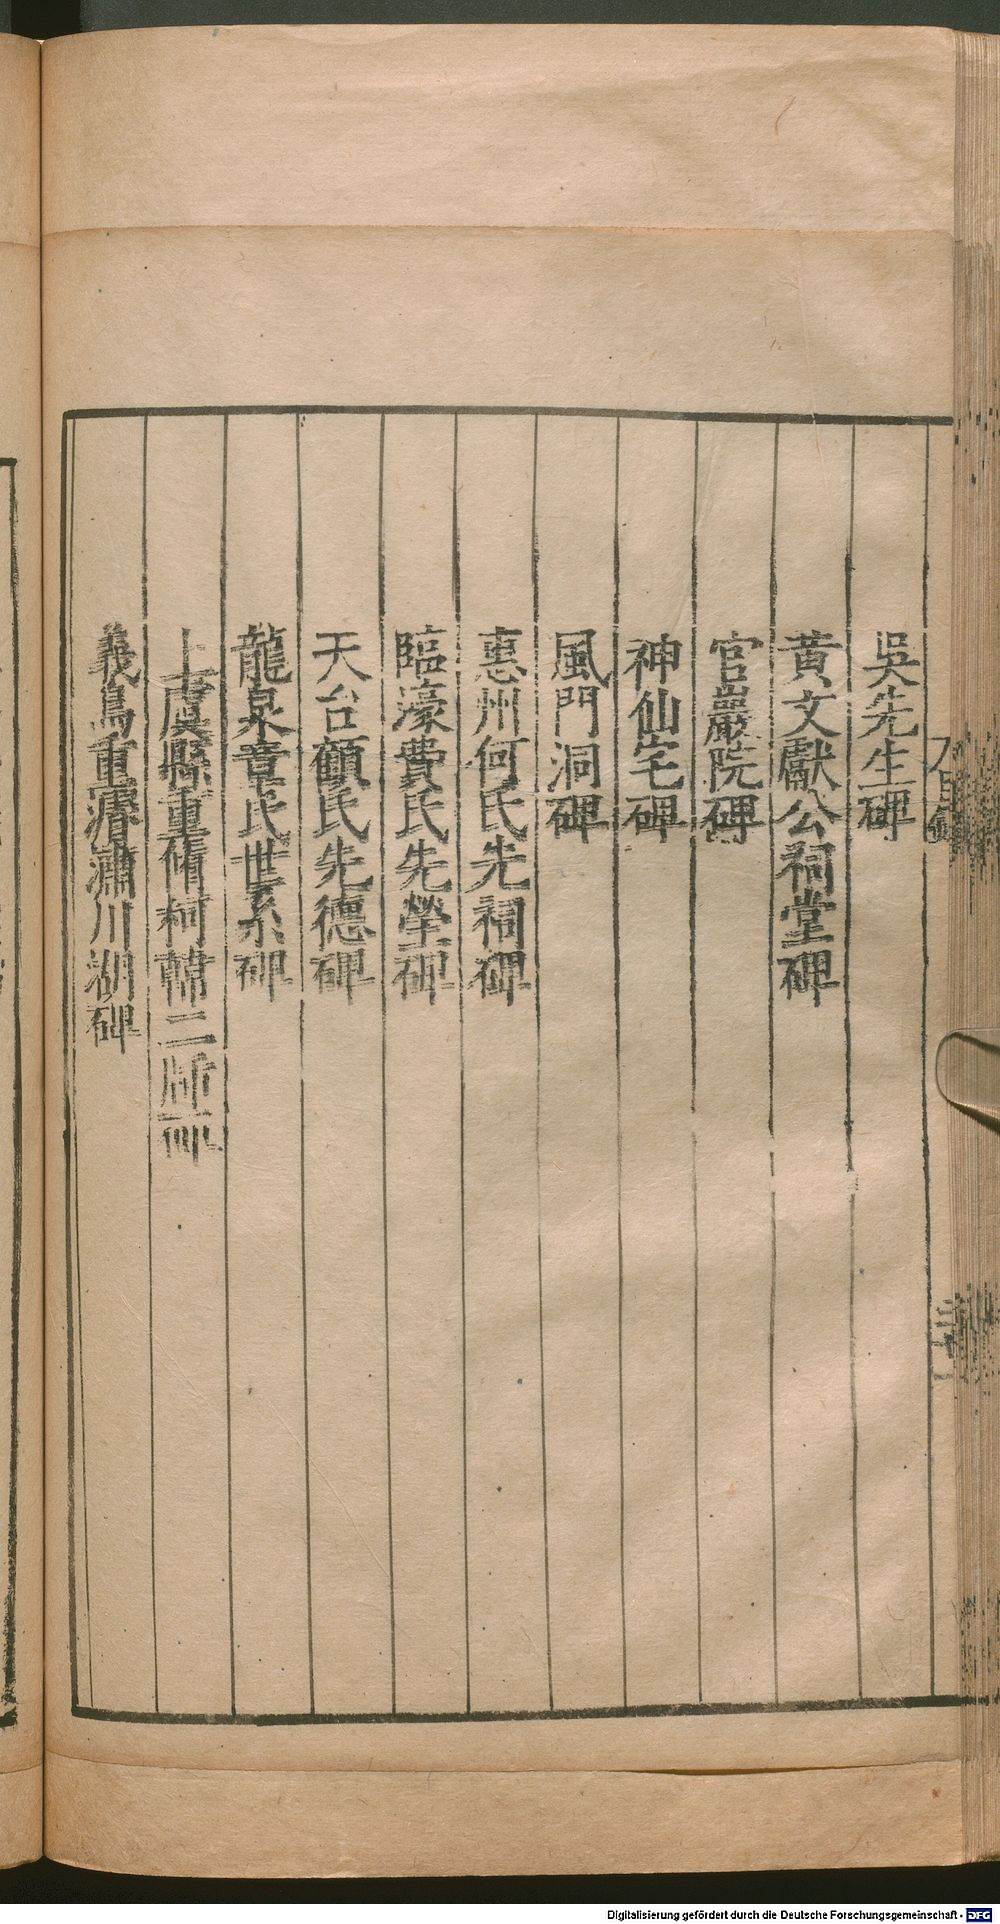 吳先生碑
黃文獻公祠堂碑
官巖院碑
神仙宅碑
風門洞碑
惠州何氏先祠碑
臨濠費氏先塋碑
天台顧氏先德碑
龍泉章氏世系碑
上虞縣重脩柯韓二
義烏重濬瀟川湖碑
Digitalisierung gefördert durch die Deutsche Forschungsgemeinschaft - DFG